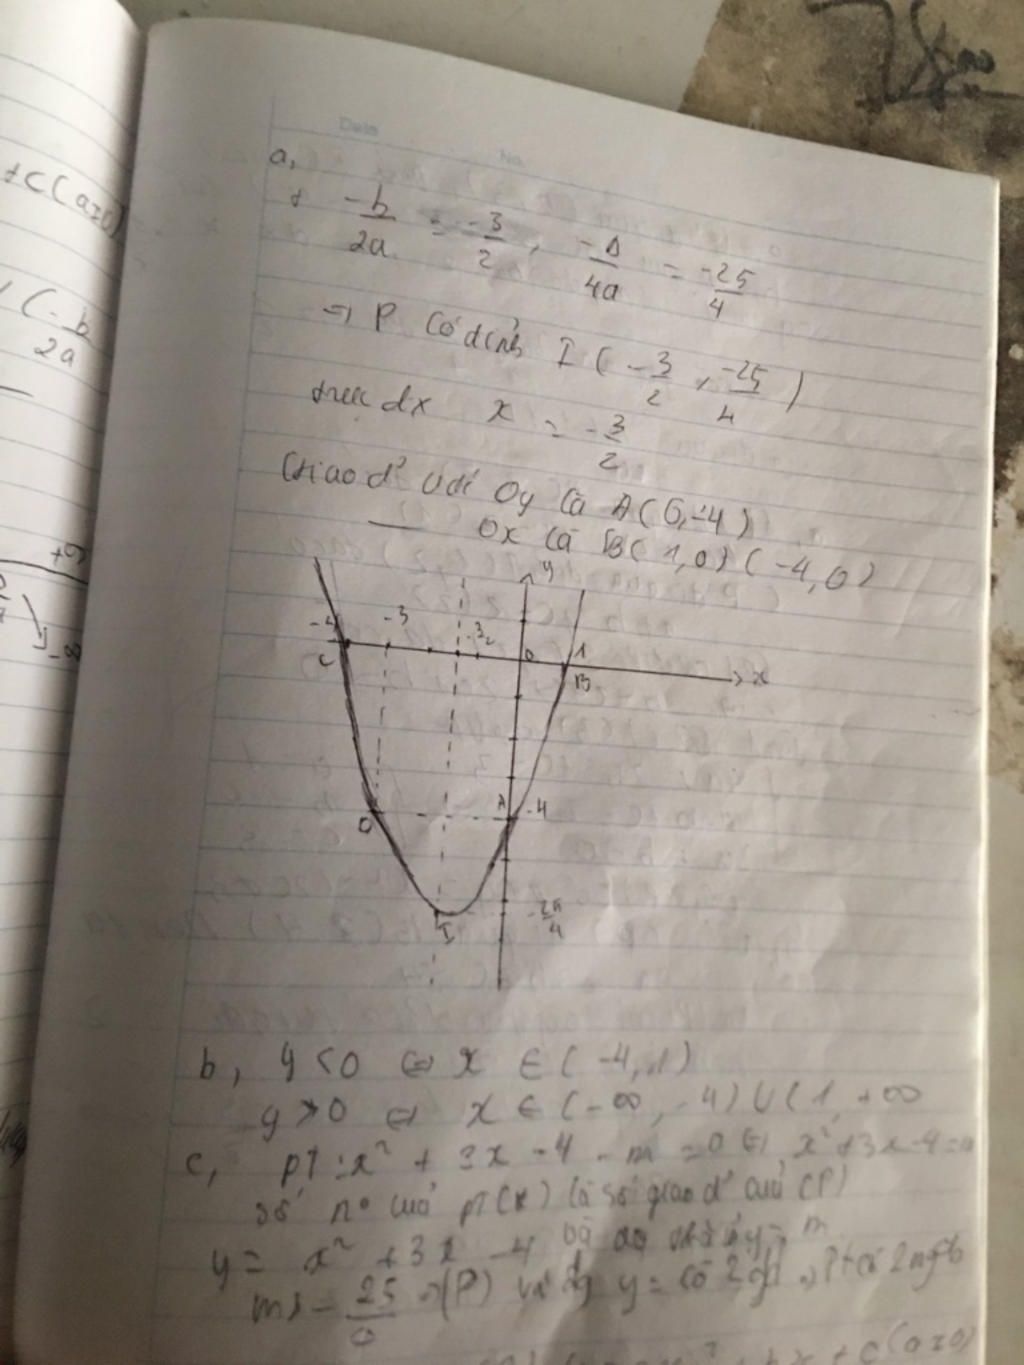 +C(a≠0)
(-b/2a
+∞
-∞
Date
No.
a,
+ -b/2a = -3/2, -Δ/4a = -25/4
=> P có đỉnh I (-3/2, -25/4)
trục đx x = -3/2
Giao đ² với Oy là A(0,-4)
— Ox là B(1,0) (-4,0)
y
-4 -3 -3/2 0 1
C B x
D A -4
I -25/4
b, y<0 ⇔ x ∈ (-4,1)
y>0 ⇔ x ∈ (-∞, -4) ∪ (1, +∞
c, pt: x² + 3x - 4 - m = 0 ⇔ x² + 3x - 4 = m
số n° của pt(*) là số giao đ² của (P)
y = x² + 3x - 4 và y = m
m > - 25 (P) và y = có 2 pt có 2
+ C(a≠0)